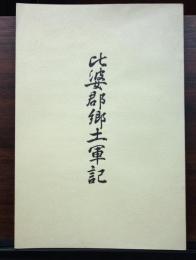 比婆郡郷土軍記